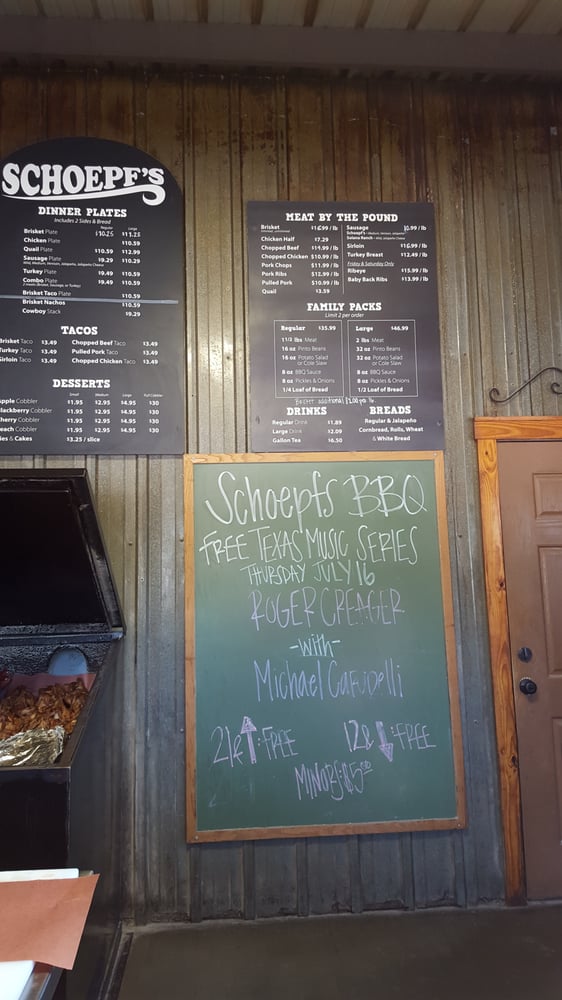 SCHOEPF'S
DINNER PLATES
Includes 2 Sides & Bread
Regular Large
Brisket Plate $10.25 $11.25
Chicken Plate $10.59
Quail Plate $10.59 $12.99
Sausage Plate $9.29 $10.29
Turkey Plate $9.49 $10.59
Combo Plate $9.49 $10.59
Brisket Taco Plate $10.59
Brisket Nachos $10.59
Cowboy Stack $9.29
TACOS
Brisket Taco $3.49 Chopped Beef Taco $3.49
Turkey Taco $3.49 Pulled Pork Taco $3.49
Sirloin Taco $3.49 Chopped Chicken Taco $3.49
DESSERTS
Small Medium Large Full Cobbler
Apple Cobbler $1.95 $2.95 $4.95 $30
Blackberry Cobbler $1.95 $2.95 $4.95 $30
Cherry Cobbler $1.95 $2.95 $4.95 $30
Peach Cobbler $1.95 $2.95 $4.95 $30
Pies & Cakes $3.25 / slice
MEAT BY THE POUND
Brisket / lb
Chicken Half $7.29
Chopped Beef $14.99 / lb
Chopped Chicken $10.99 / lb
Pork Chops $11.99 / lb
Pork Ribs $12.99 / lb
Pulled Pork $10.99 / lb
Quail $3.59
Sausage / lb
Sirloin $16.99 / lb
Turkey Breast $12.49 / lb
Friday & Saturday Only
Ribeye $15.99 / lb
Baby Back Ribs $13.99 / lb
FAMILY PACKS
Limit 2 per order
Regular $35.99
1 1/2 lbs Meat
16 oz Pinto Beans
16 oz Potato Salad
or Cole Slaw
8 oz BBQ Sauce
8 oz Pickles & Onions
1/4 Loaf of Bread
Large $46.99
2 lbs Meat
32 oz Pinto Beans
32 oz Potato Salad
or Cole Slaw
8 oz BBQ Sauce
8 oz Pickles & Onions
1/2 Loaf of Bread
Brisket additional $2.00 per lb.
DRINKS
Regular Drink $1.89
Large Drink $2.09
Gallon Tea $6.50
BREADS
Regular & Jalapeño
Cornbread, Rolls, Wheat
& White Bread
Schoepfs BBQ
FREE TEXAS MUSIC SERIES
THURSDAY JULY 16
ROGER CREAGER
-with-
Michael Carubelli
21 & ↑: FREE 12 & ↓: FREE
MINORS: $5.00